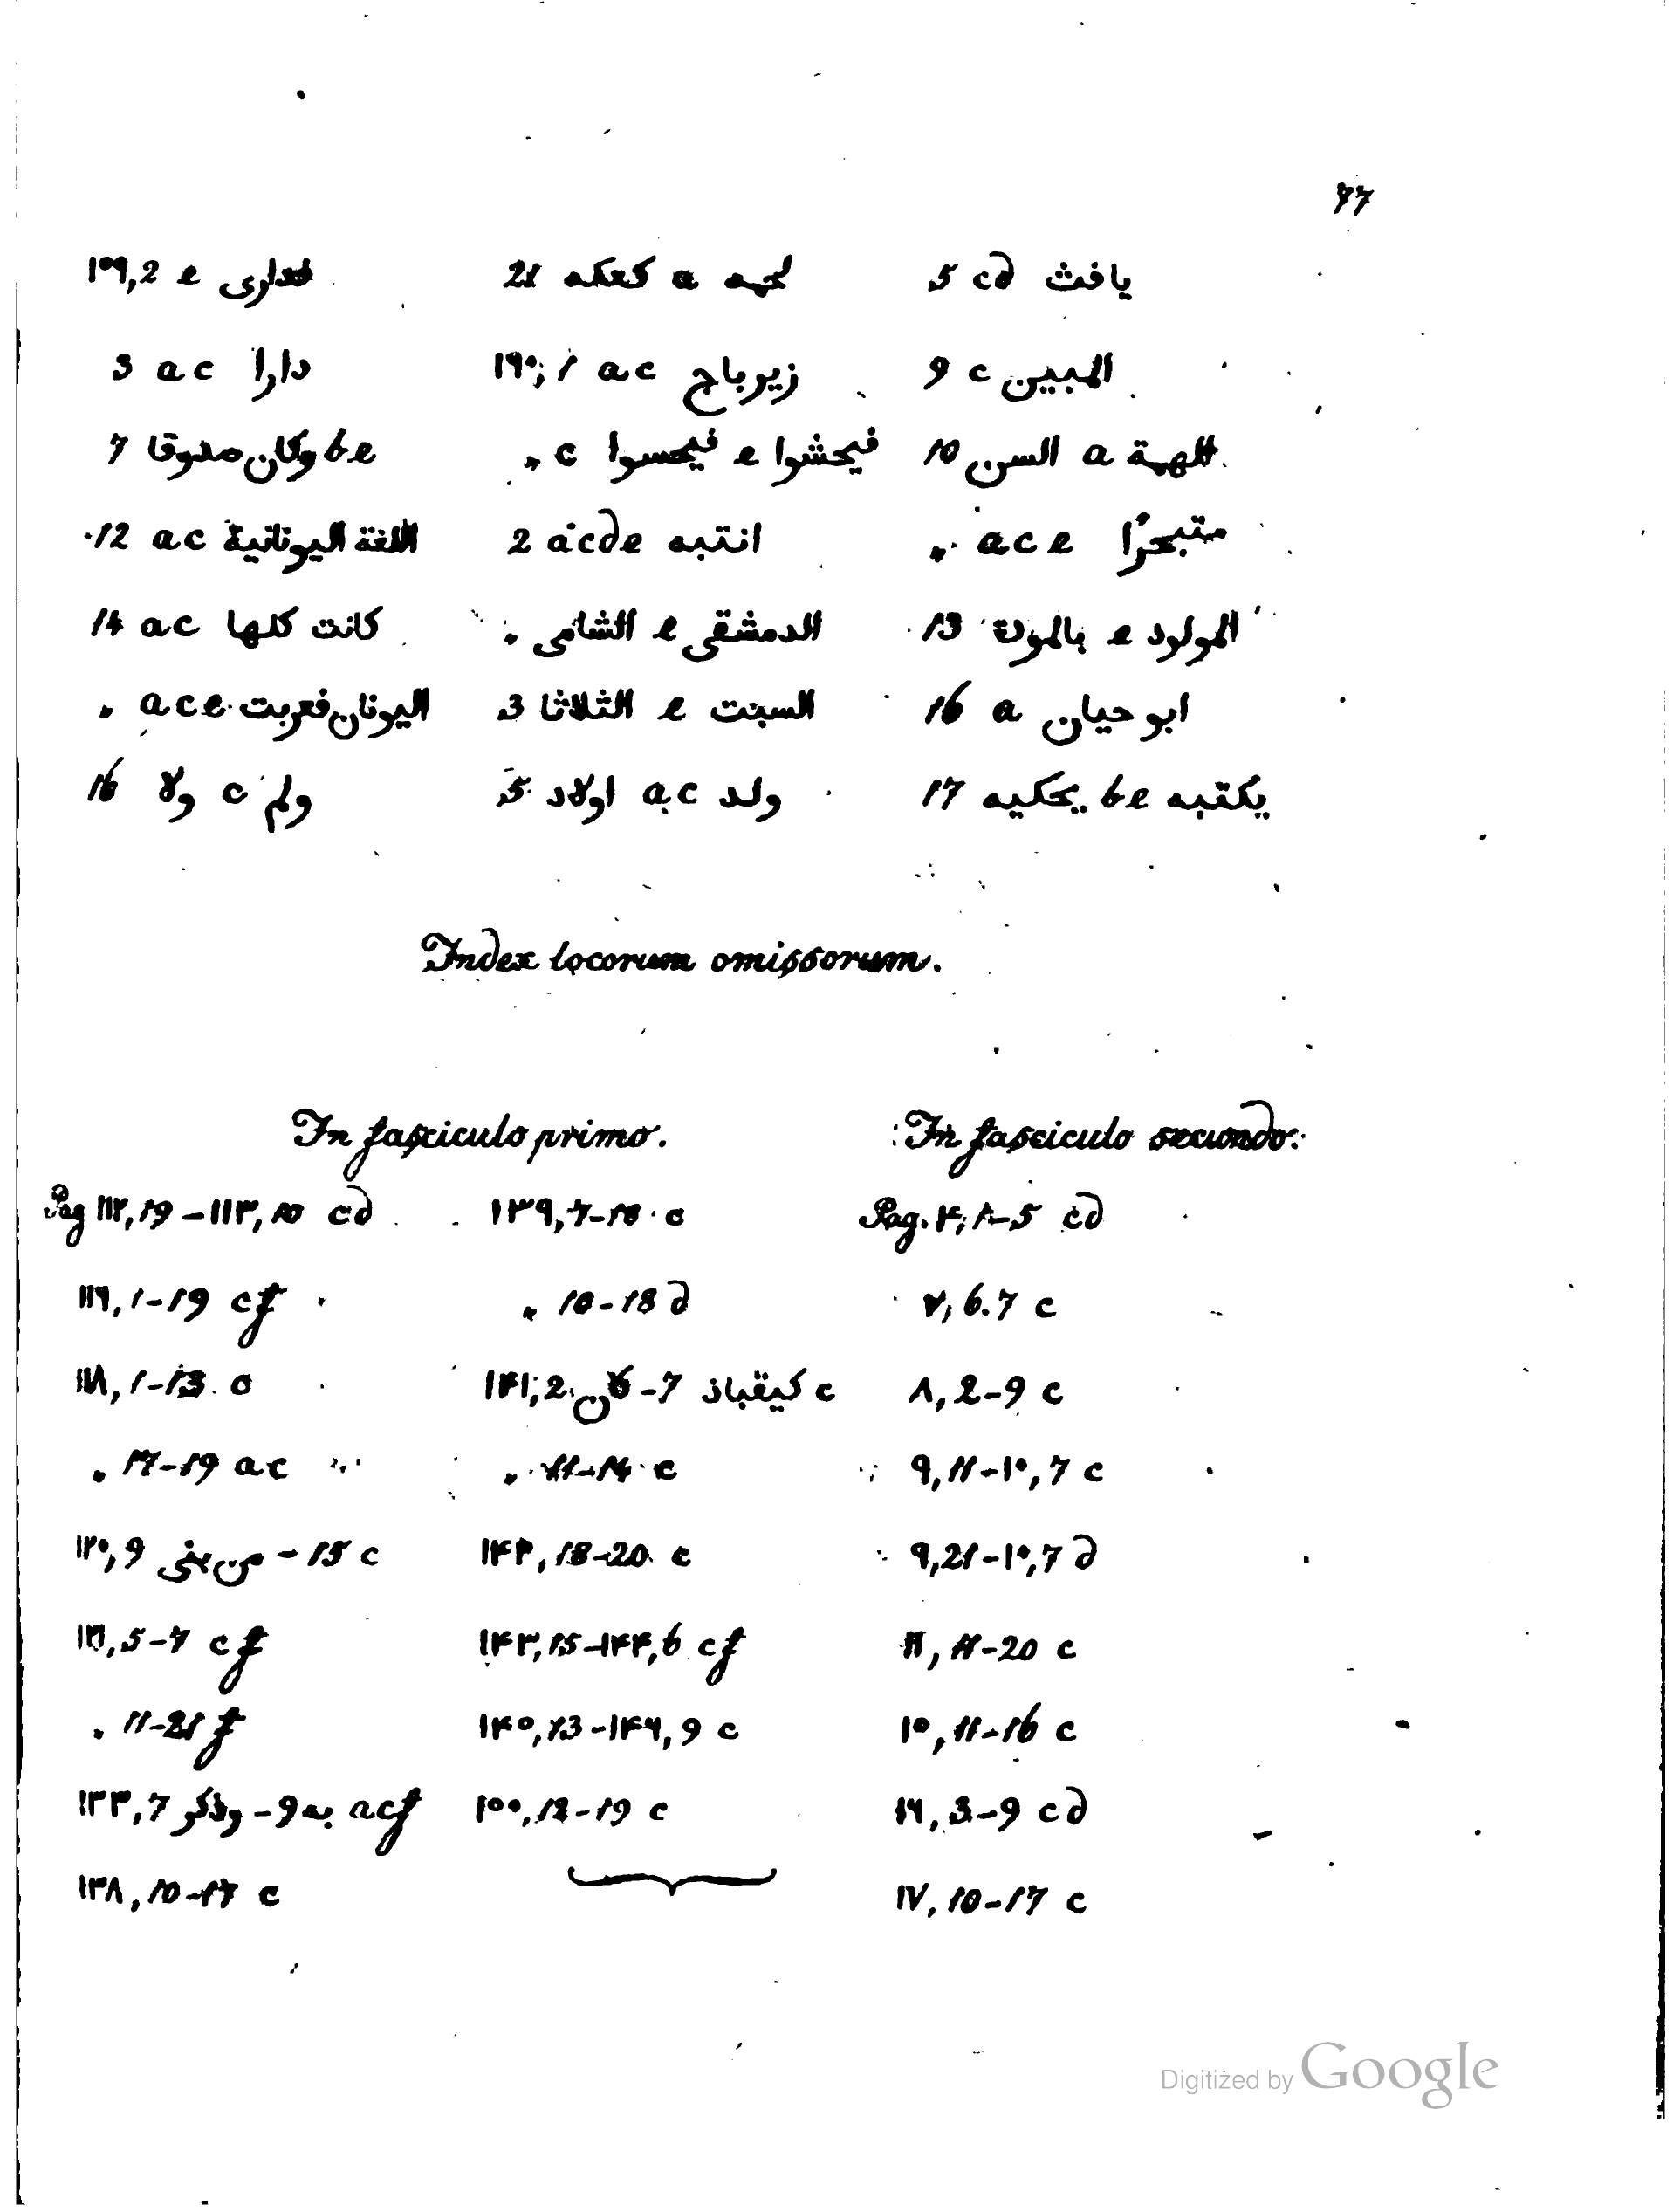 77
١٥٩,2 e
21 كعكه a
5 cd يافث
3 a c دارا
١٩٠,1 a c زيرباج
9 c المبين
7 وكان صدوقا be
„ c فيحسوا e فيحشوا
10 السن a الهمة
12 a c اللغة اليونانية
2 acde انتبه
„ a c e متبحرًا
14 a c كانت كلها
„ الشامى e الدمشقى
13 بالمولد e المولود
„ a c e اليونان فعربت
3 الثلاثا e السبت
16 a ابو حيان
16 ولا c ولم
5 اولاد a c ولد
17 يحكيه be
Index locorum omissorum.
In fasciculo primo.
In fasciculo secundo.
Pag ١١٢,19–١١٣,10 cd
١٣٩,7–10 c
Pag. ٤,1–5 cd
١١٦,1–19 cf
„ 10–18 d
٧,6.7 c
١١٨,1–13 c
١٤١,2 كان –7 كيقباذ c
٨,2–9 c
„ 17–19 a c
„ 11–14 c
٩,11–١٠,7 c
١٢٠,9 من بنى – 15 c
١٤٢,18–20 c
٩,21–١٠,7 d
5–7 cf
١٤٣,15–١٤٤,6 cf
١١,11–20 c
„ 11–21 f
١٤٥,13–١٤٦,9 c
١٥,11–16 c
١٣٣,7 وذكر – 9 به acf
١٥٥,12–19 c
١٦,3–9 cd
١٣٨,10–17 c
١٧,10–17 c
Digitized by Google